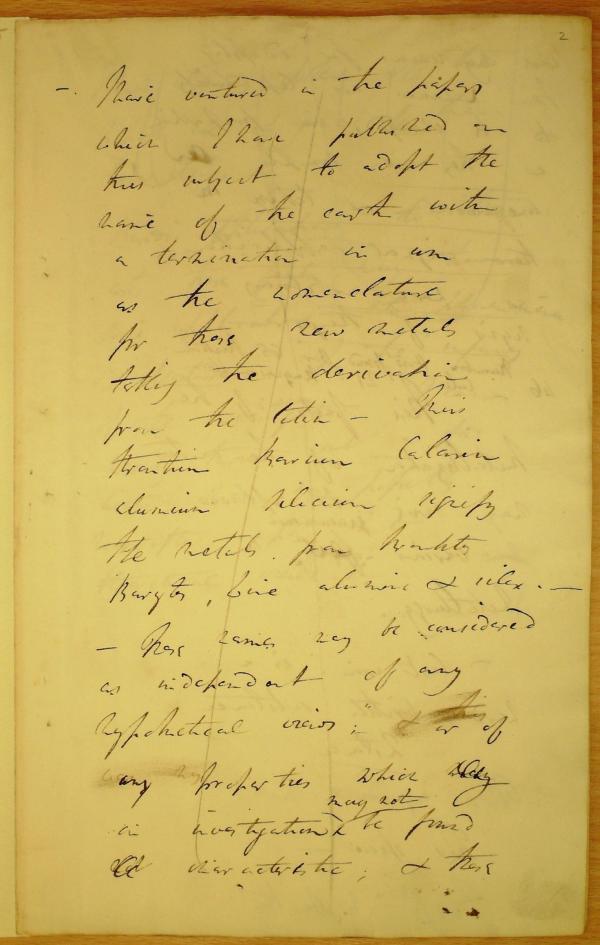 2
-. I have ventured in the papers
which I have published on
this subject to adopt the
name of the earth with
a termination in um
as the nomenclature
for these new metals
taking the derivation
from the latin - Thus
Strontium Barium Calcium
alumium silicium signify
the metals from Strontites
Barytes, Lime alumine & silex. -
- These names may be considered
as independent of any
hypothetical views; & or of
any properties which
may not
in investigation be found
characteristic; & these